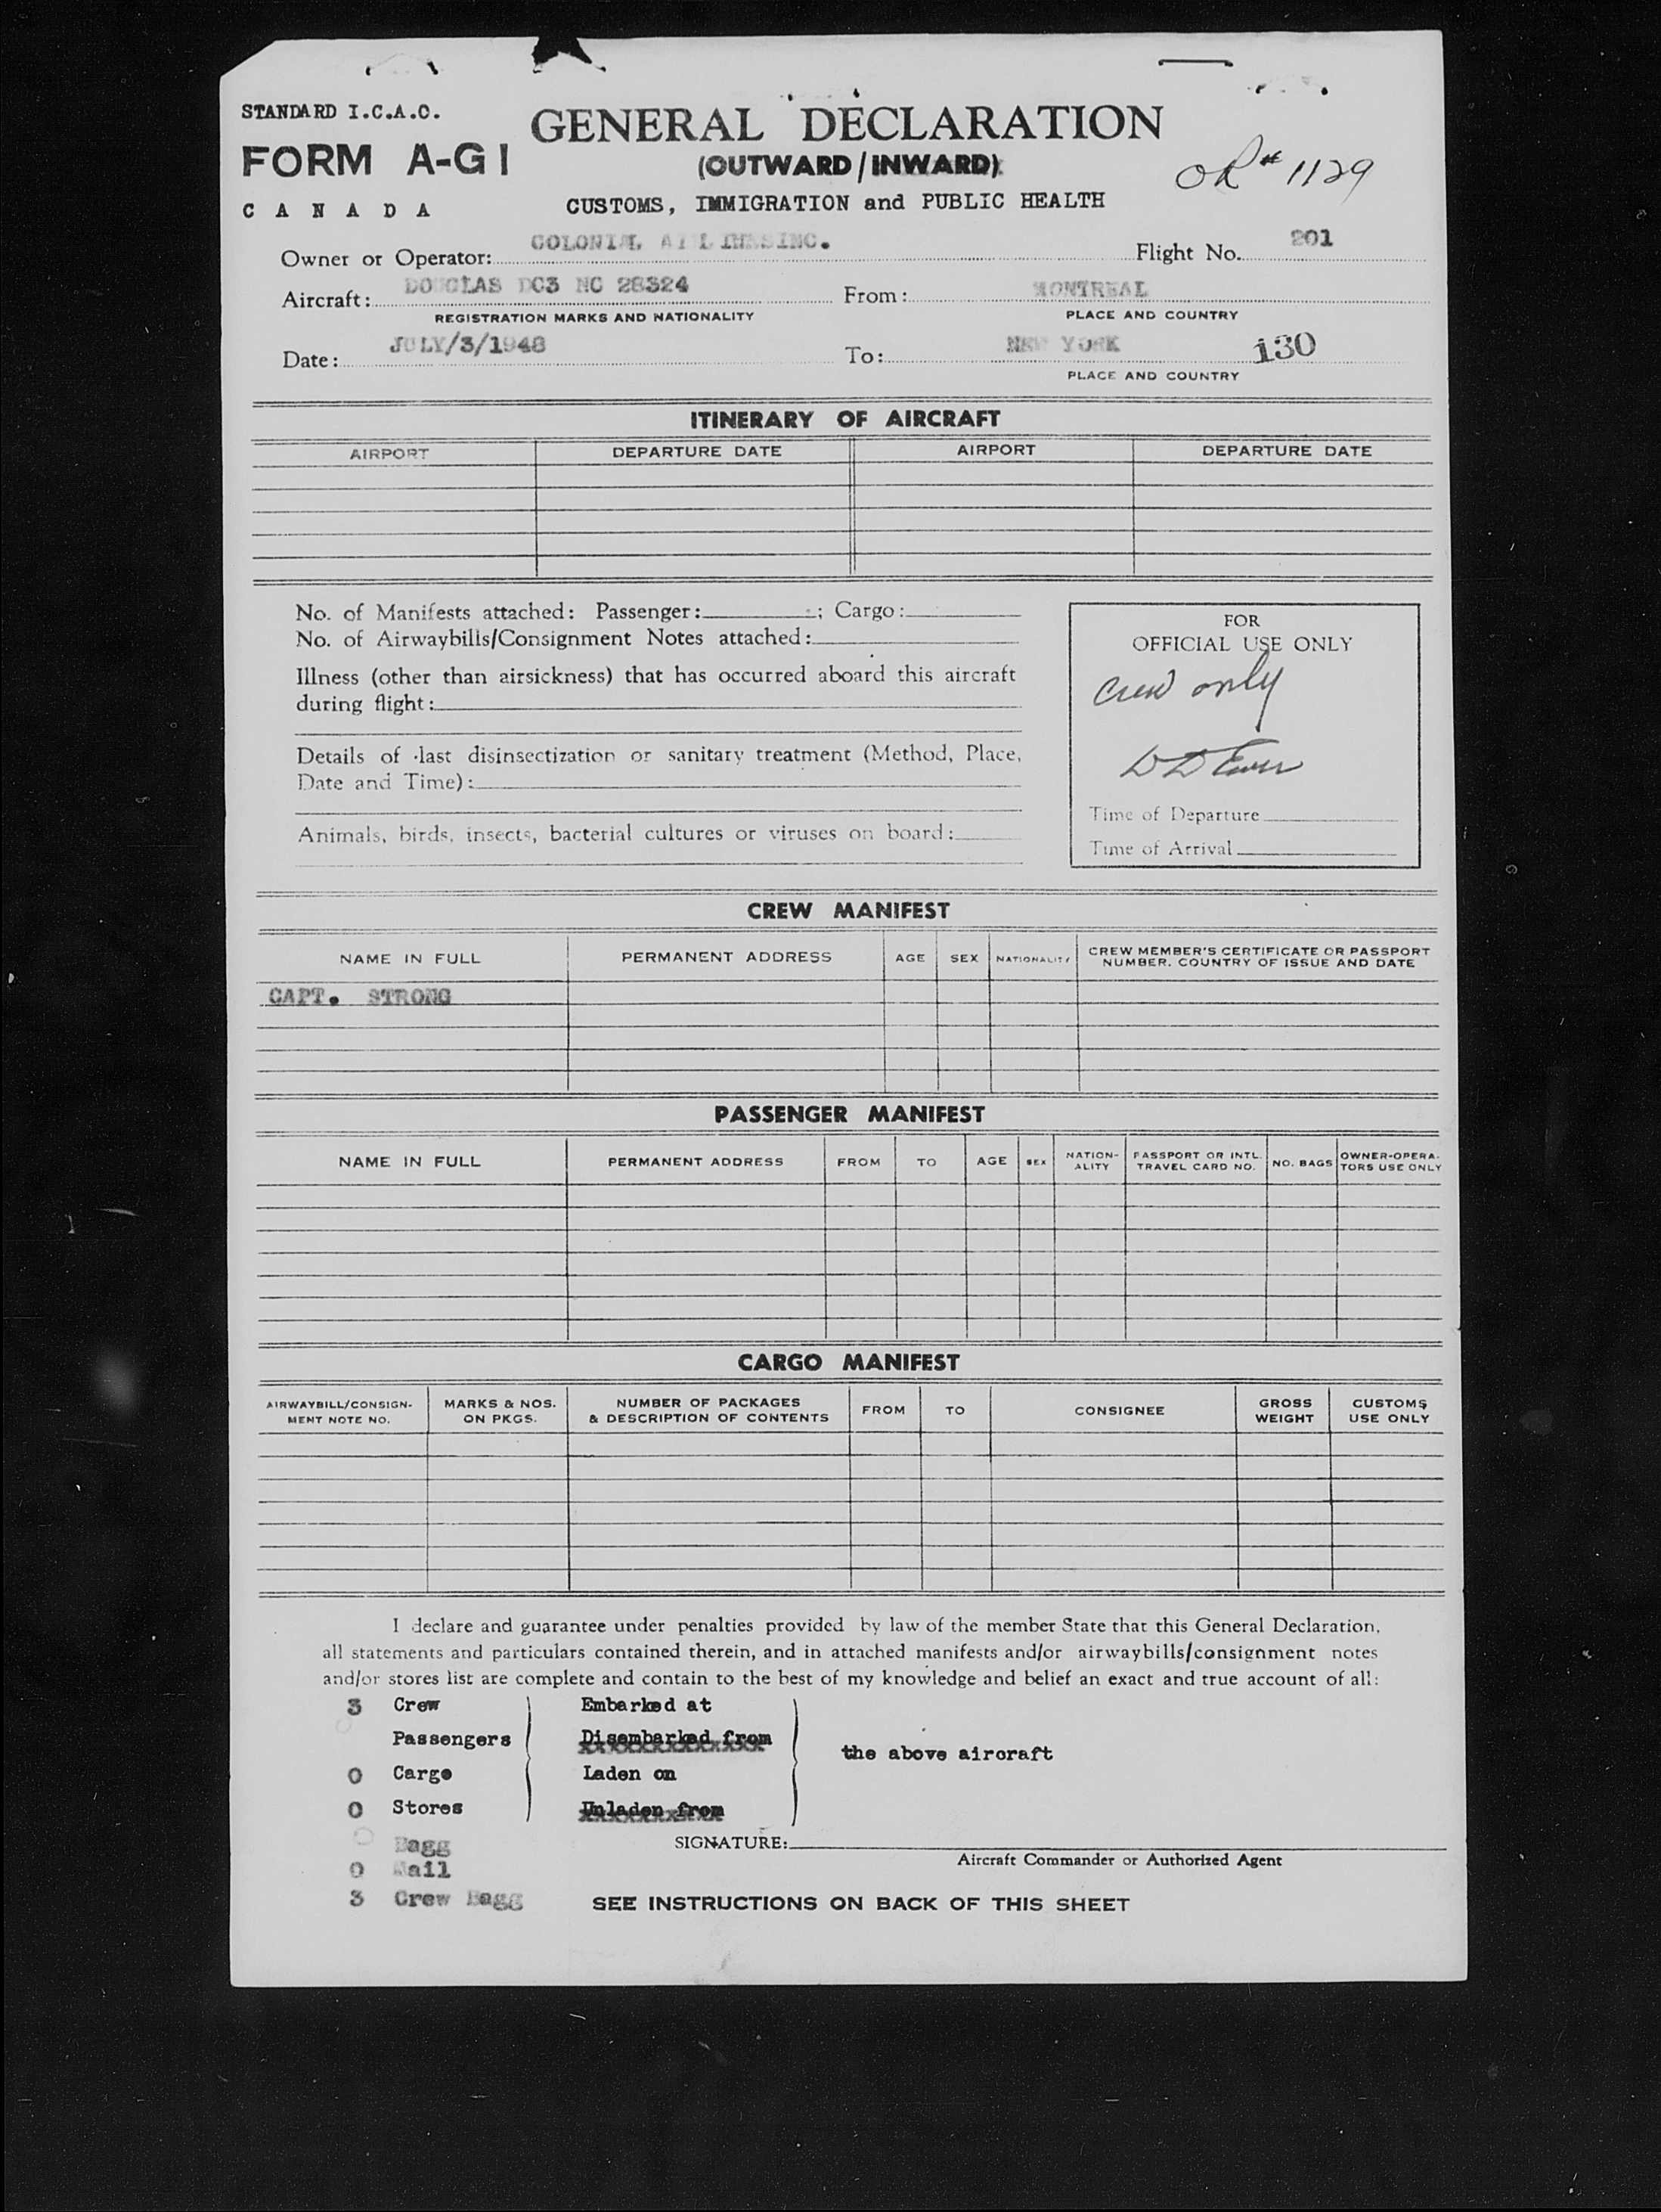 STANDARD I.C.A.O.
FORM A-G1
CANADA
GENERAL DECLARATION
(OUTWARD/INWARD)
CUSTOMS, IMMIGRATION and PUBLIC HEALTH
OR# 1129
Owner or Operator: COLONIAL AIRLINES INC. Flight No. 201
Aircraft: DOUGLAS DC3 NC 28324 From: MONTREAL
REGISTRATION MARKS AND NATIONALITY PLACE AND COUNTRY
Date: JULY/3/1948 To: NEW YORK 130
PLACE AND COUNTRY
ITINERARY OF AIRCRAFT
AIRPORT DEPARTURE DATE AIRPORT DEPARTURE DATE
No. of Manifests attached: Passenger: ; Cargo:
No. of Airwaybills/Consignment Notes attached:
Illness (other than airsickness) that has occurred aboard this aircraft
during flight:
Details of last disinsectization or sanitary treatment (Method, Place,
Date and Time):
Animals, birds, insects, bacterial cultures or viruses on board:
FOR
OFFICIAL USE ONLY
Crew only
Time of Departure
Time of Arrival
CREW MANIFEST
NAME IN FULL PERMANENT ADDRESS AGE SEX NATIONALITY CREW MEMBER'S CERTIFICATE OR PASSPORT
NUMBER, COUNTRY OF ISSUE AND DATE
CAPT. STRONG
PASSENGER MANIFEST
NAME IN FULL PERMANENT ADDRESS FROM TO AGE SEX NATION-
ALITY PASSPORT OR INTL.
TRAVEL CARD NO. NO. BAGS OWNER-OPERA-
TORS USE ONLY
CARGO MANIFEST
AIRWAYBILL/CONSIGN-
MENT NOTE NO. MARKS & NOS.
ON PKGS. NUMBER OF PACKAGES
& DESCRIPTION OF CONTENTS FROM TO CONSIGNEE GROSS
WEIGHT CUSTOMS
USE ONLY
I declare and guarantee under penalties provided by law of the member State that this General Declaration,
all statements and particulars contained therein, and in attached manifests and/or airwaybills/consignment notes
and/or stores list are complete and contain to the best of my knowledge and belief an exact and true account of all:
3 Crew Embarked at
0 Passengers Disembarked from
the above aircraft
0 Cargo Laden on
0 Stores Unladen from
0 Bagg
SIGNATURE:
Aircraft Commander or Authorized Agent
0 Mail
3 Crew Bagg
SEE INSTRUCTIONS ON BACK OF THIS SHEET